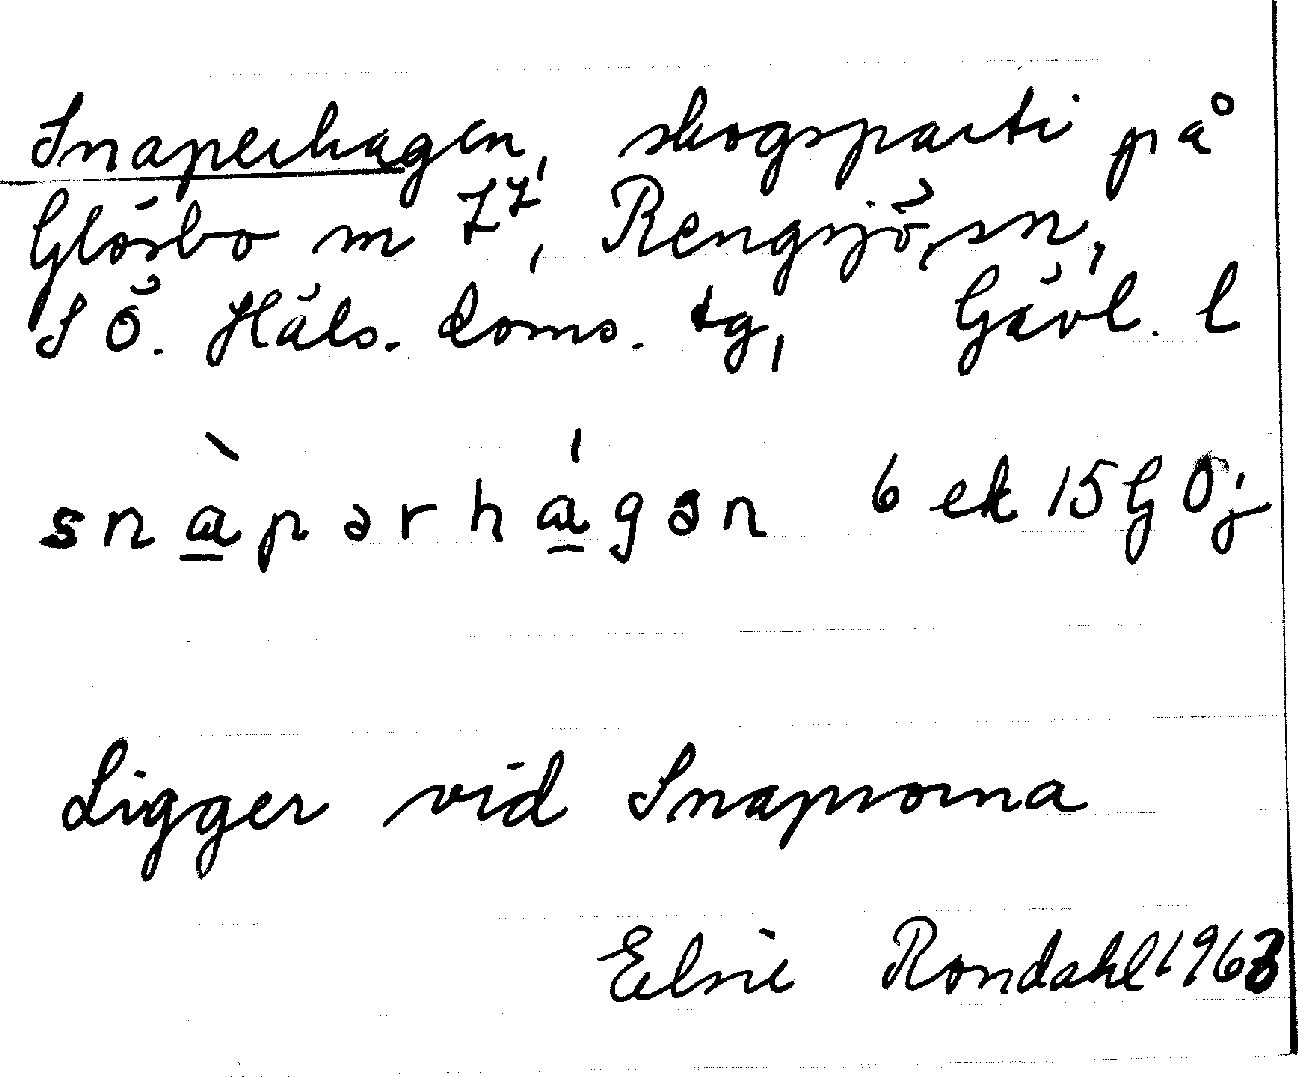 Snaperhagen, skogsparti på
Glösbo m 7⁷, Rengsjö sn,
S Ö. Häls. doms. tg, Gävl. l
snàpərhágən 6 ek 15 G Öj
Ligger vid Snaprorna
Elsie Rondahl 1963